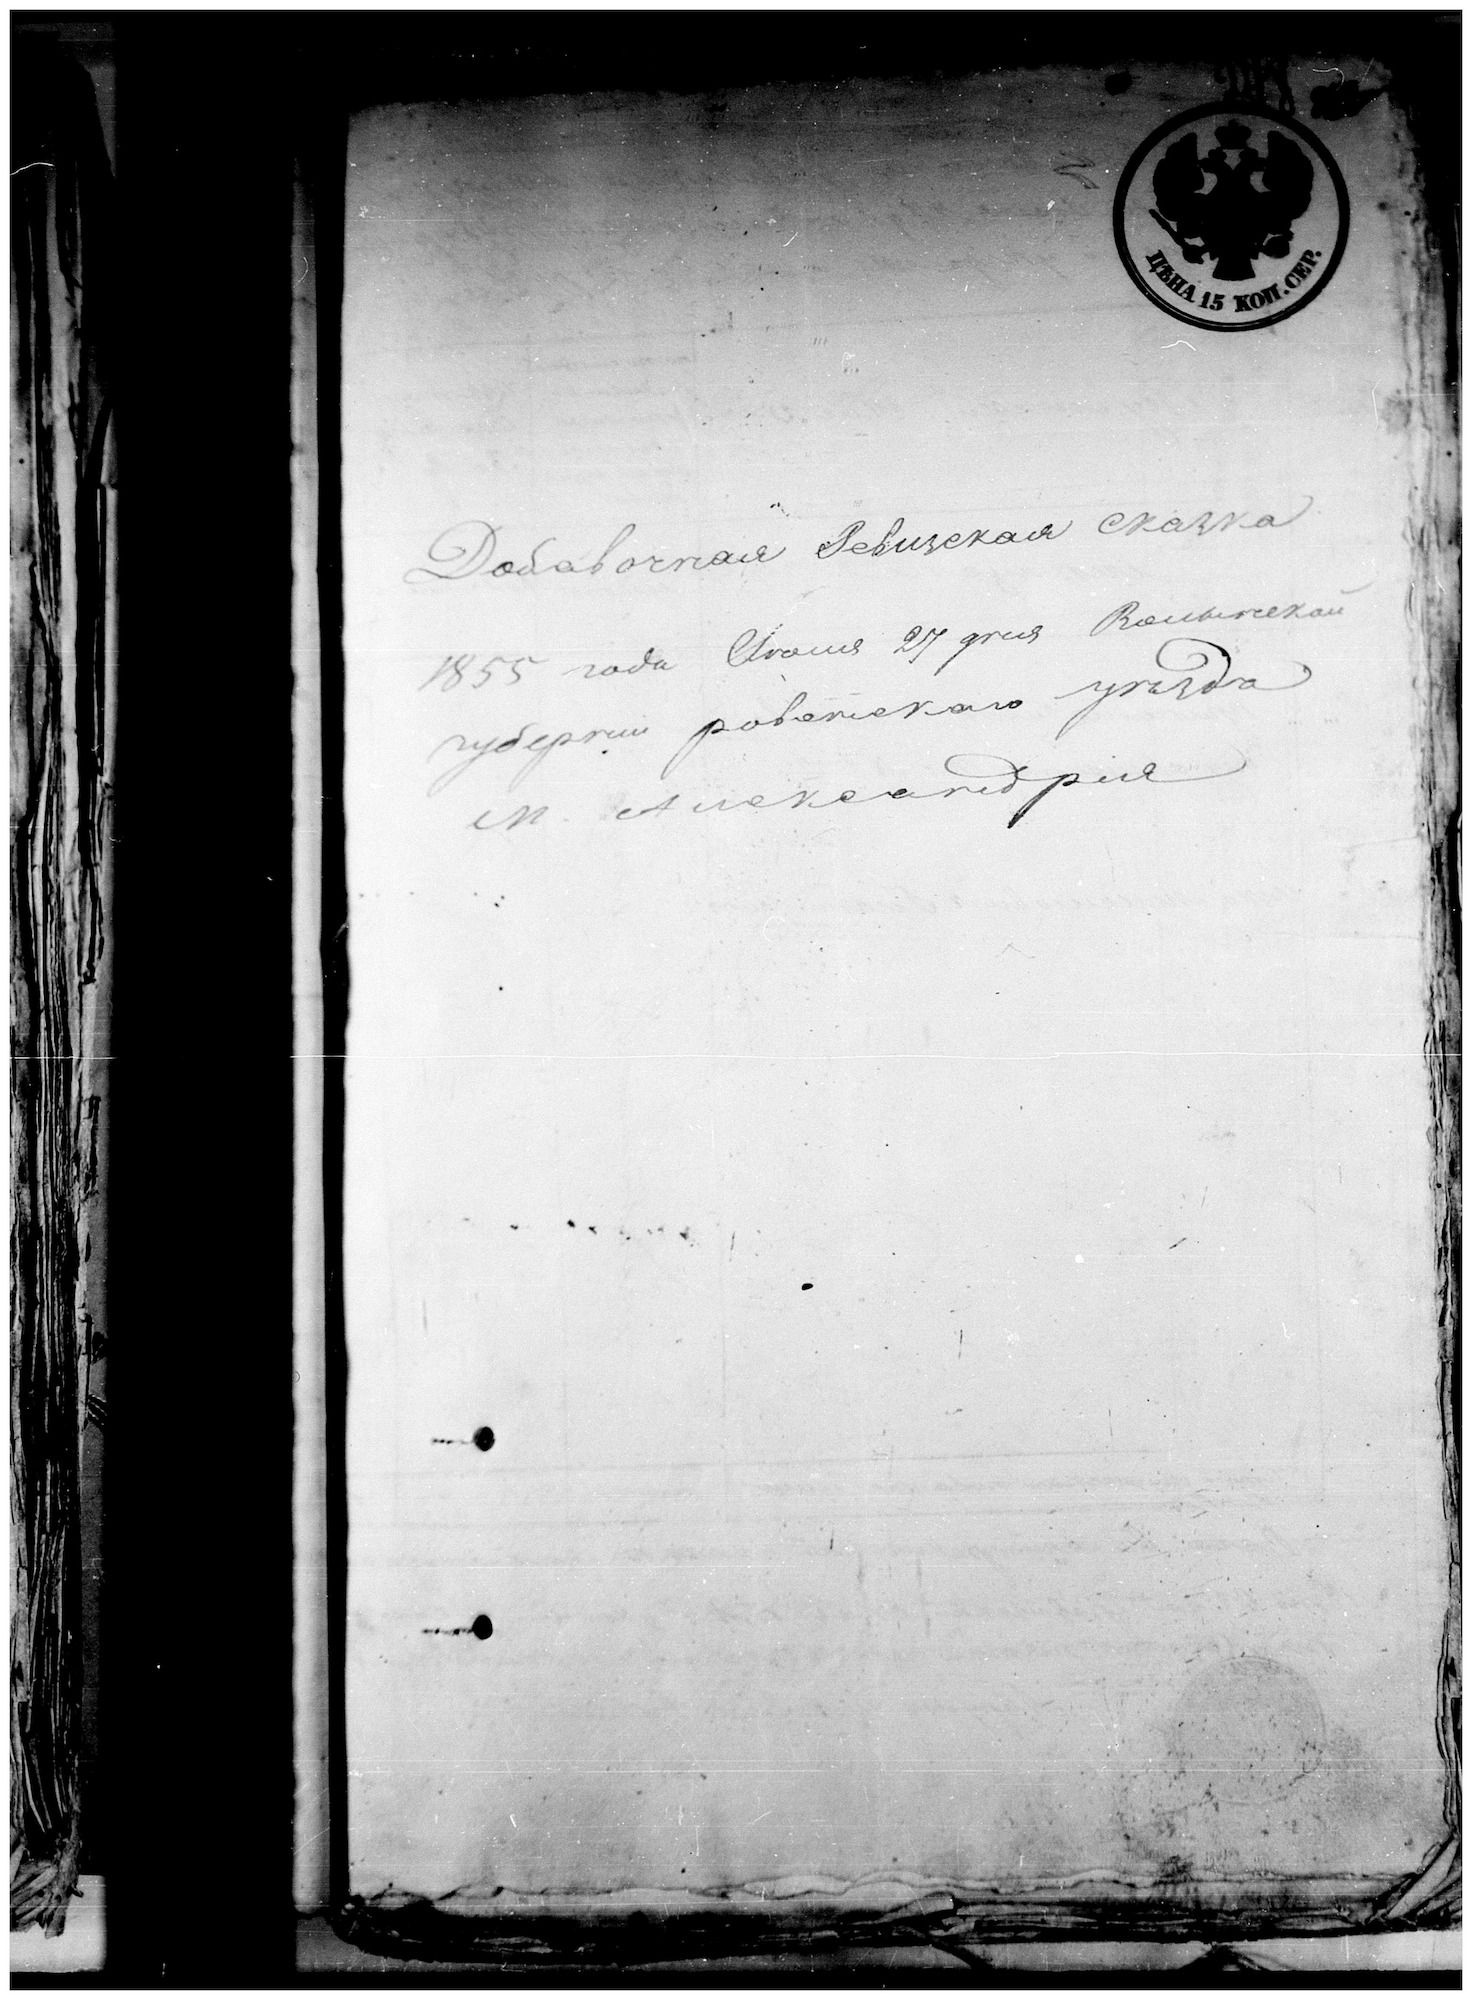 ЦѢНА 15 КОП. СЕР.
Добавочная Ревизская сказка
1855 года Июня 27 дня Волынской
губернии ровенскаго уѣзда
м. Александрія